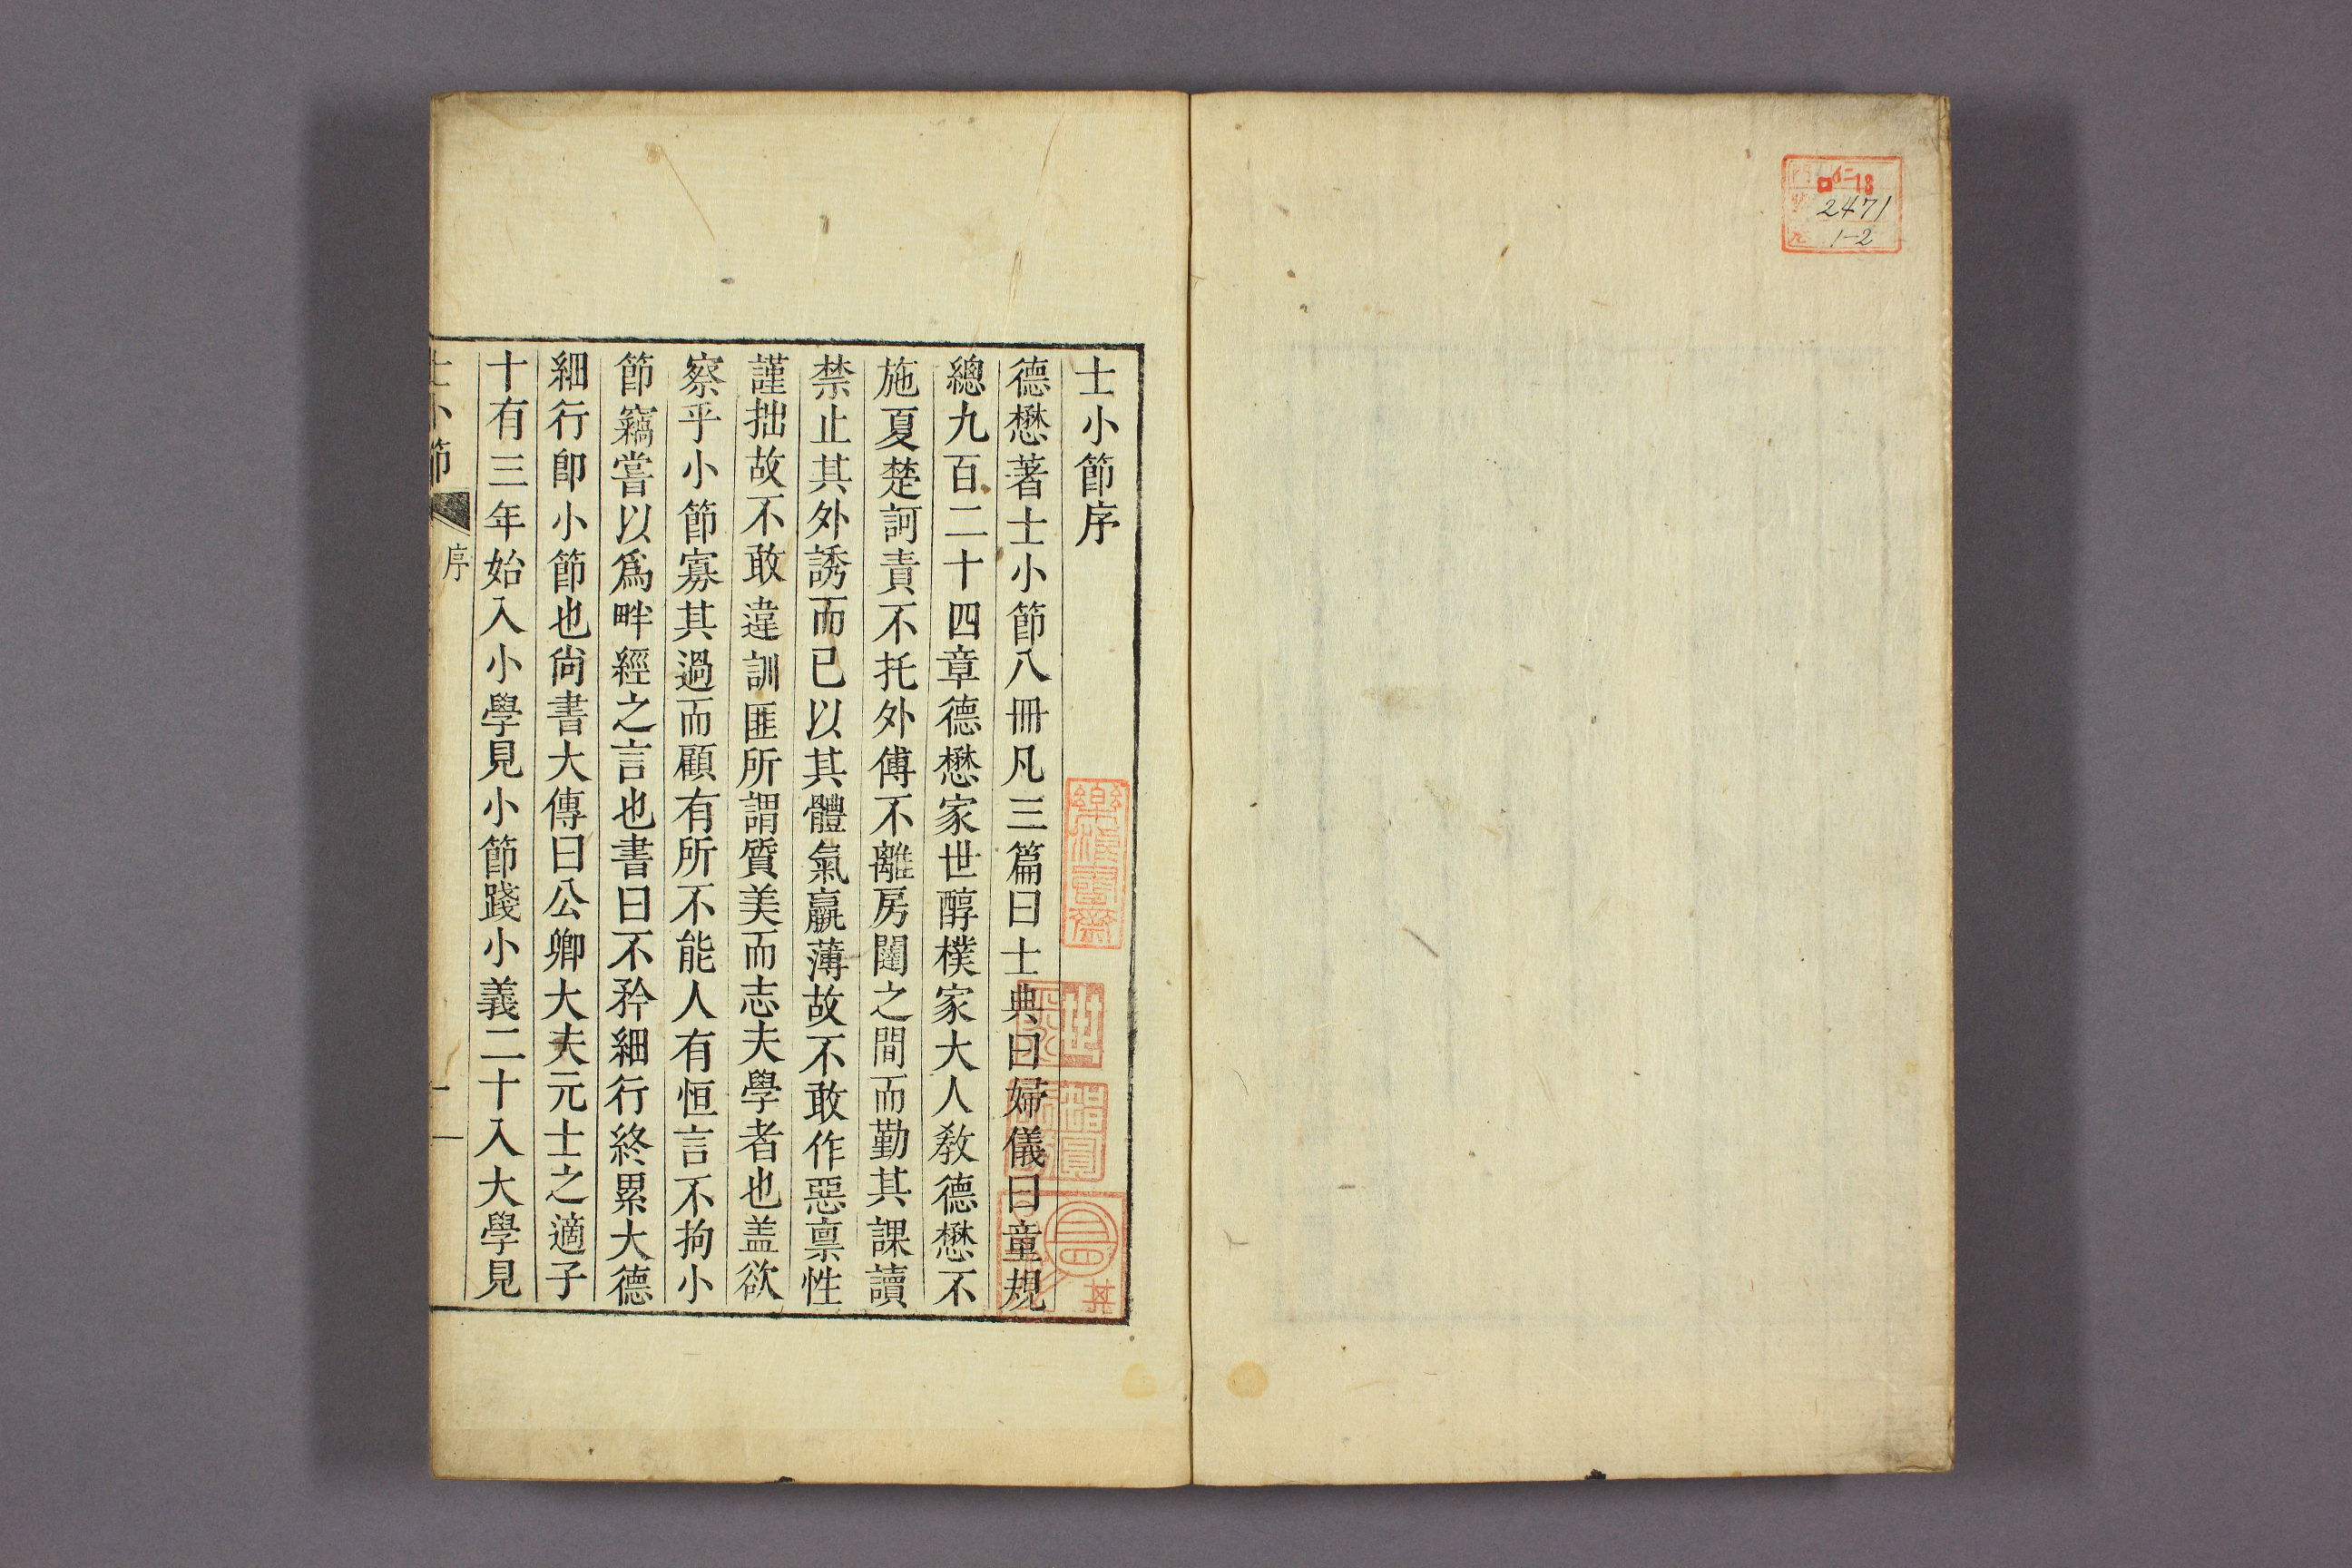 口 18
2471
1-2
士小節序
德懋著士小節八冊凡三篇曰士典曰婦儀曰童規
總九百二十四章德懋家世醇樸家大人敎德懋不
施夏楚訶責不托外傅不離房闥之間而勤其課讀
禁止其外誘而已以其體氣羸薄故不敢作惡稟性
謹拙故不敢違訓匪所謂質美而志夫學者也盖欲
察乎小節寡其過而顧有所不能人有恒言不拘小
節竊嘗以爲畔經之言也書曰不矜細行終累大德
細行卽小節也尙書大傳曰公卿大夫元士之適子
十有三年始入小學見小節踐小義二十入大學見
士小節
序
一